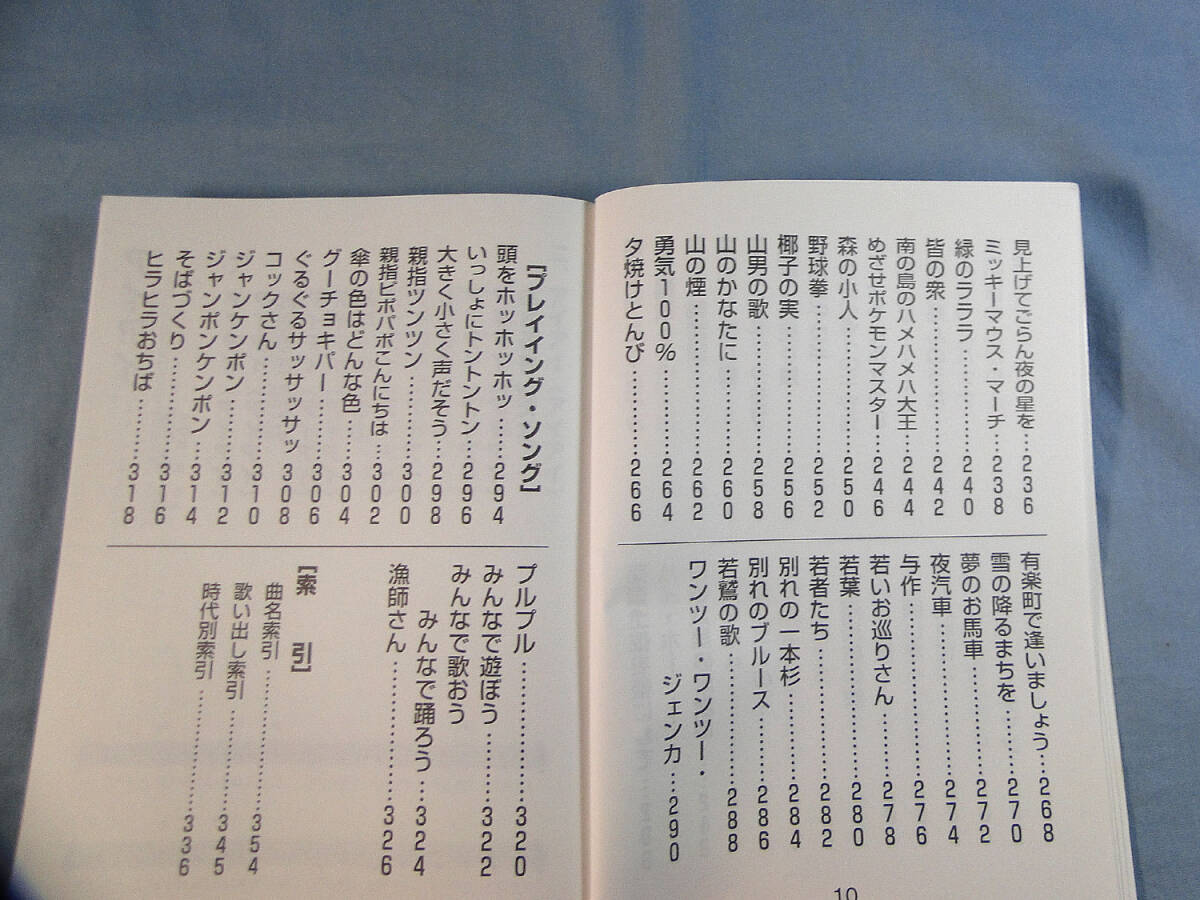 見上げてごらん夜の星を…236
ミッキーマウス・マーチ…238
緑のラララ…………240
皆の衆…………242
南の島のハメハメハ大王…244
めざせポケモンマスター…246
森の小人…………250
野球拳…………252
椰子の実…………256
山男の歌…………258
山のかなたに…………260
山の煙…………262
勇気100%…………264
夕焼けとんび…………266
有楽町で逢いましょう…268
雪の降るまちを…………270
夢のお馬車…………272
夜汽車…………274
与作…………276
若いお巡りさん…………278
若葉…………280
若者たち…………282
別れの一本杉…………284
別れのブルース…………286
若鷲の歌…………288
ワンツー・ワンツー・
ジェンカ…290
10
[プレイイング・ソング]
頭をホッホッホッ……294
いっしょにトントントン…296
大きく小さく声だそう…298
親指ツンツン…………300
親指ピポパポこんにちは…302
傘の色はどんな色……304
グーチョキパー………306
ぐるぐるサッサッサッ 308
コックさん…………310
ジャンケンポン………312
ジャンポンケンポン…314
そばづくり…………316
ヒラヒラおちば………318
プルプル…………320
みんなで遊ぼう………322
みんなで歌おう
みんなで踊ろう…324
漁師さん…………326
[索 引]
曲名索引…………354
歌い出し索引…………345
時代別索引…………336